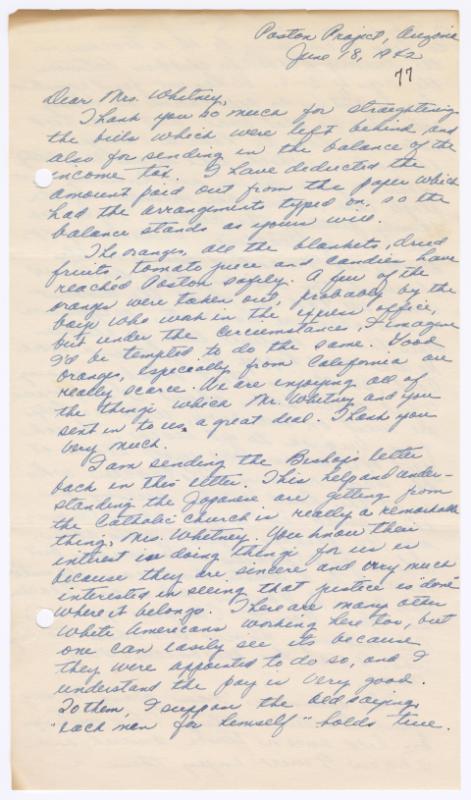 Poston Project, Arizona
June 18, 1942
77
Dear Mrs. Whitney,
Thank you so much for straightening
the bills which were left behind and
also for sending in the balance of the
income tax. I have deducted the
amount paid out from the paper which
had the arrangements typed on, so the
balance stands as yours will.
The oranges, all the blankets, dried
fruits, tomato juice and candies have
reached Poston safely. A few of the
oranges were taken out, probably by the
boys who work in the express office,
but under the circumstances, I imagine
I'd be tempted to do the same. Good
oranges, especially from California are
really scarce. We are enjoying all of
the things which Mr. Whitney and you
sent in to us, a great deal. Thank you
very much.
I am sending the Bishop's letter
back in this letter. This help and under-
standing the Japanese are getting from
the Catholic church is really a remarkable
thing, Mrs. Whitney. You know their
interest in doing things for us is
because they are sincere and very much
interested in seeing that justice is "done"
where it belongs. There are many other
White Americans working here too, but
one can easily see its because
they were appointed to do so, and I
understand the pay is very good.
To them, I suppose the old saying,
"each man for himself" holds true.